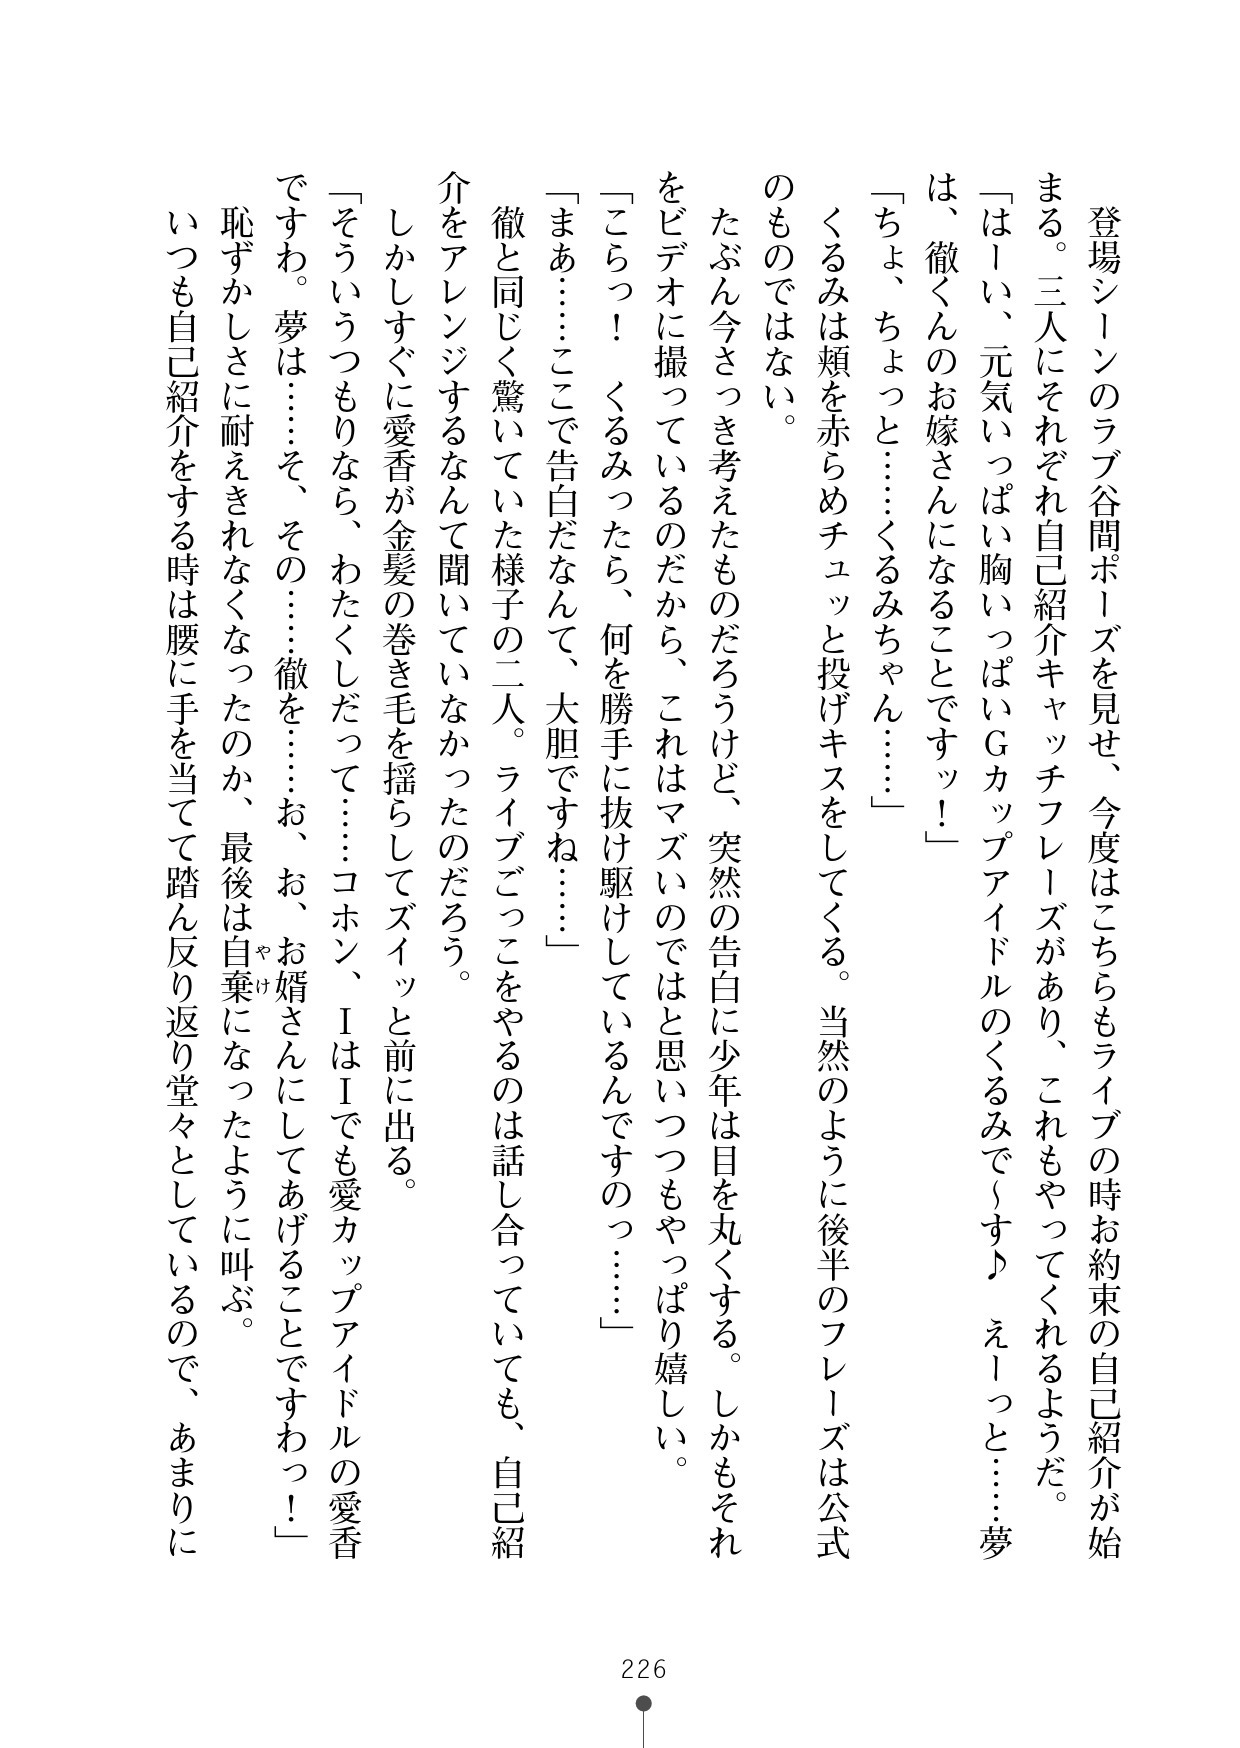 登場シーンのラブ谷間ポーズを見せ、今度はこちらもライブの時お約束の自己紹介が始
まる。三人にそれぞれ自己紹介キャッチフレーズがあり、これもやってくれるようだ。
「はーい、元気いっぱい胸いっぱいGカップアイドルのくるみで～す♪　えーっと……夢
は、徹くんのお嫁さんになることですッ！」
「ちょ、ちょっと……くるみちゃん……」
　くるみは頬を赤らめチュッと投げキスをしてくる。当然のように後半のフレーズは公式
のものではない。
　たぶん今さっき考えたものだろうけど、突然の告白に少年は目を丸くする。しかもそれ
をビデオに撮っているのだから、これはマズいのではと思いつつもやっぱり嬉しい。
「こらっ！　くるみったら、何を勝手に抜け駆けしているんですのっ……」
「まあ……ここで告白だなんて、大胆ですね……」
　徹と同じく驚いていた様子の二人。ライブごっこをやるのは話し合っていても、自己紹
介をアレンジするなんて聞いていなかったのだろう。
　しかしすぐに愛香が金髪の巻き毛を揺らしてズイッと前に出る。
「そういうつもりなら、わたくしだって……コホン、IはIでも愛カップアイドルの愛香
ですわ。夢は……そ、その……徹を……お、お、お婿さんにしてあげることですわっ！」
　恥ずかしさに耐えきれなくなったのか、最後は自棄になったように叫ぶ。
やけ
　いつも自己紹介をする時は腰に手を当てて踏ん反り返り堂々としているので、あまりに
226